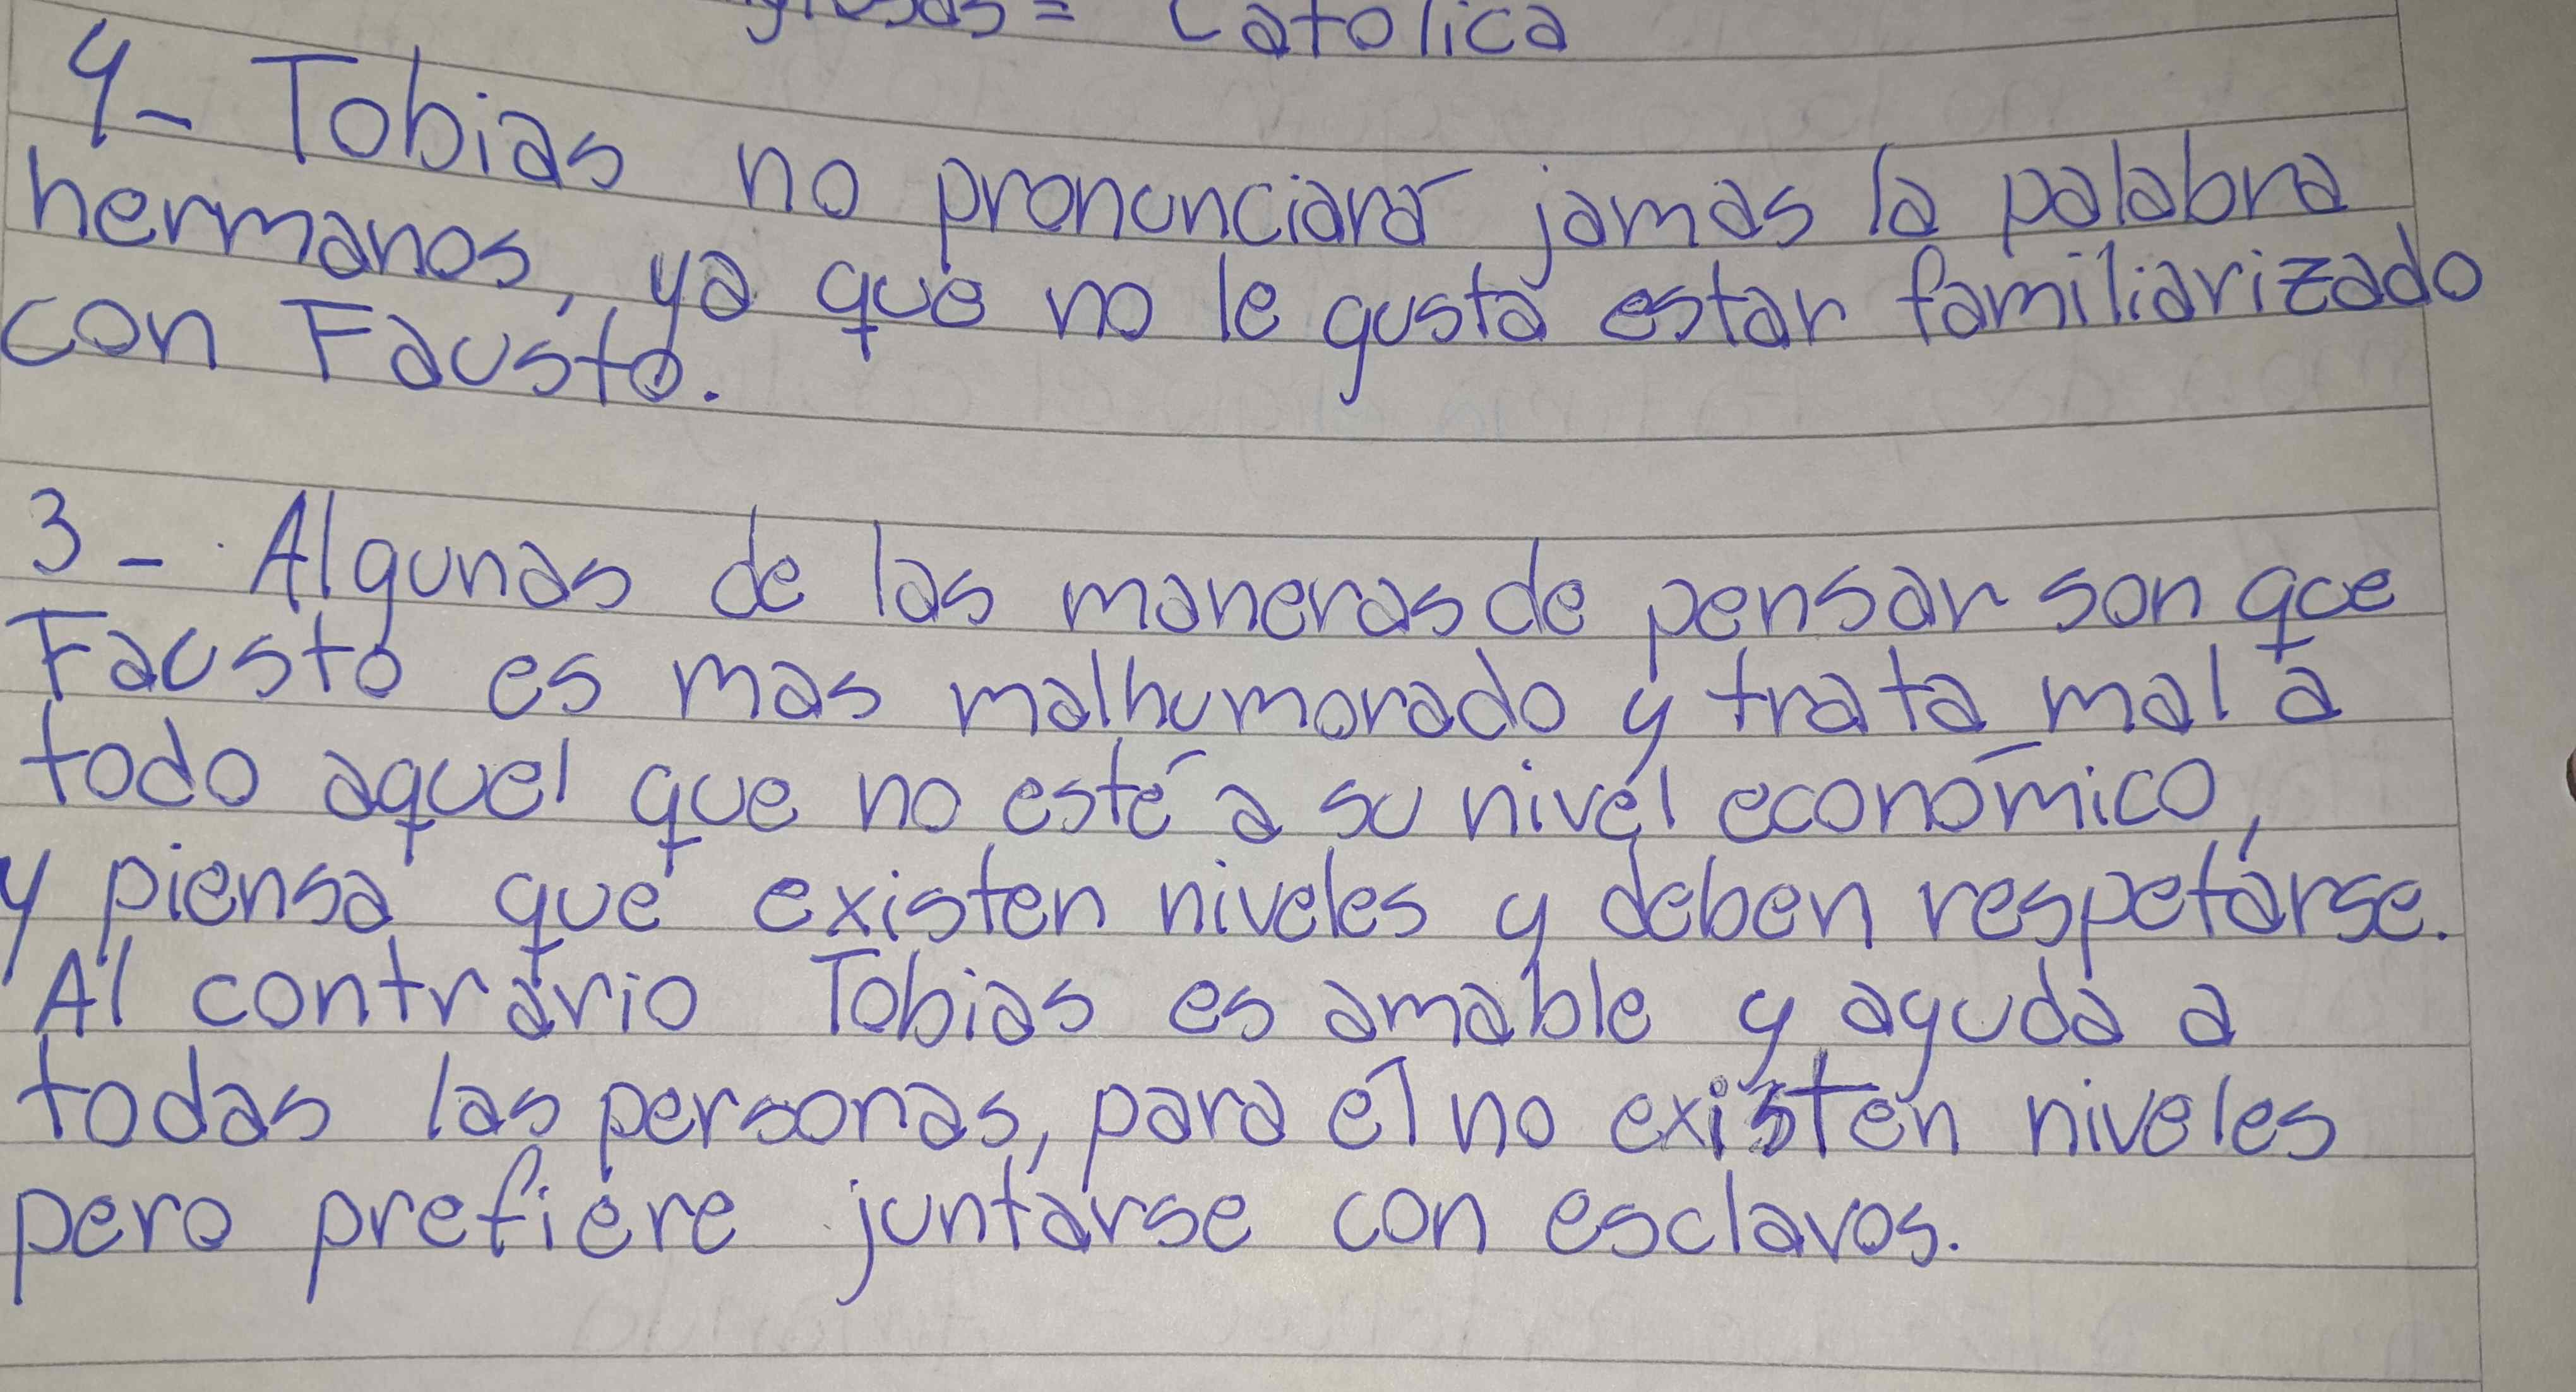 = Catolica
4- Tobias no pronunciará jamas la palabra
hermanos, ya que no le gusta estar familiarizado
con Fausto.
3- Algunas de las maneras de pensar son que
Fausto es mas malhumorado y trata mal a
todo aquel que no esté a su nivel económico,
y piensa que existen niveles y deben respetarse.
Al contrario Tobias es amable y ayuda a
todas las personas, para él no existen niveles
pero prefiere juntarse con esclavos.